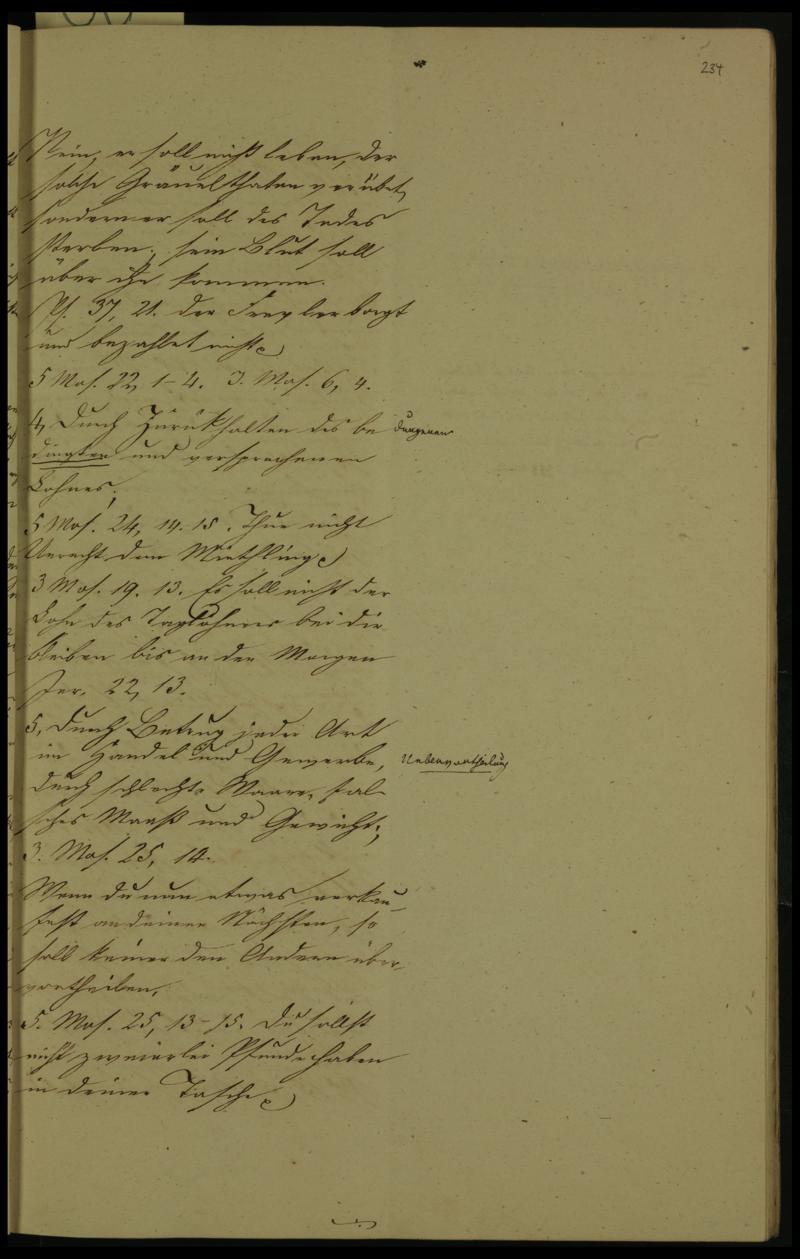 234
Nein, er soll nicht leben, der
solche Gräuelthaten verübet,
sondern er soll des Todes
sterben; sein Blut soll
über ihn kommen.
Ps. 37, 21. der Frevler borgt
und bezahlet nicht.
5 Mos. 22, 1-4. 3. Mos. 6, 4.
4, Durch Zurückhalten des be dungenen
dingten und versprochenen
Lohnes;
5 Mos. 24, 14. 15. Thue nicht
Unrecht dem Miethling.
3 Mos. 19. 13. Es soll nicht der
Lohn des Taglöhners bei dir
bleiben bis an den Morgen
Jer. 22, 13.
5, durch Betrug jeder Art
im Handel und Gewerbe, Uebervortheilung
durch schlechte Waare, fal-
sches Maaß und Gewicht;
3. Mos. 25, 14.
Wenn du nun etwas verkau-
fest an deinen Nächsten, so
soll keiner den Andern über-
vortheilen.
5. Mos. 25, 13-15. Du sollst
nicht zweierlei Pfunde haben
in deiner Tasche